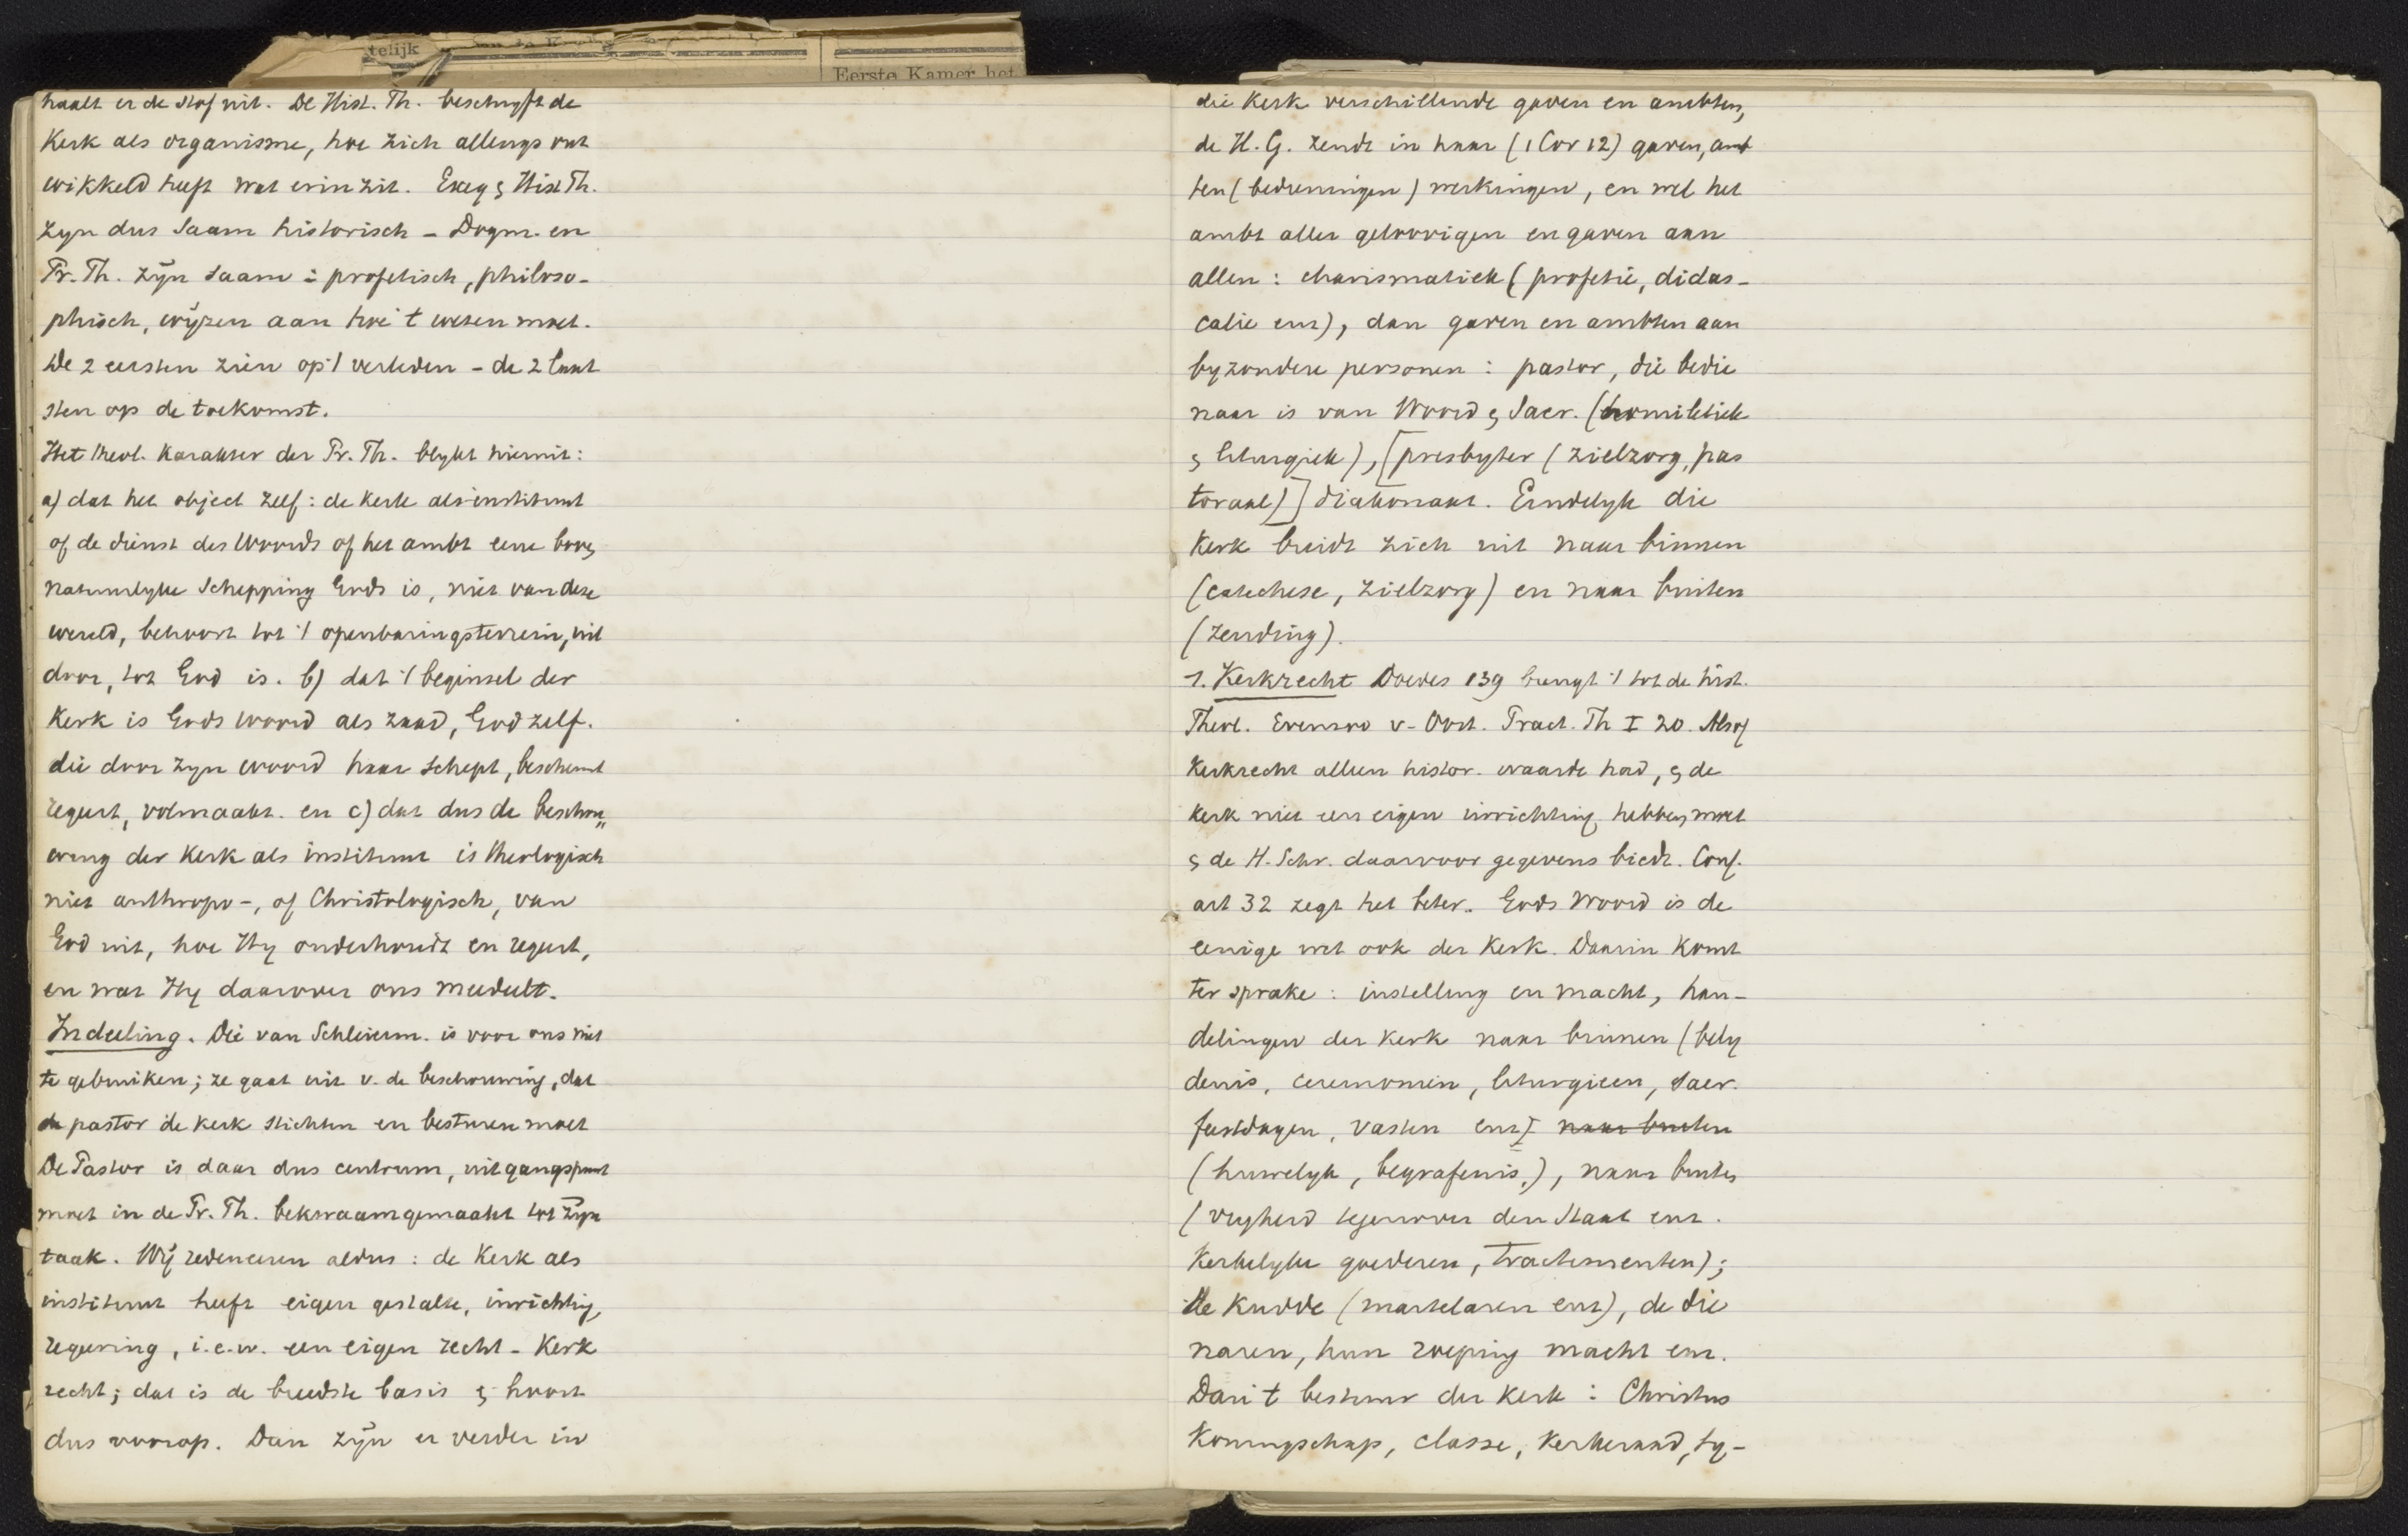 telijk
Eerste Kamer het
haalt er de stof uit. De Hist. Th. beschryft de
Kerk als organisme, hoe zich allengs ont
wikkeld heeft wat erin zit. Exeg & Hist Th.
zyn dus saam historisch - Dogm. en
Pr. Th. zyn saam : profetisch, philoso-
phisch, wyzen aan hoe 't wezen moet.
De 2 eersten zien op 't verleden - de 2 laat
sten op de toekomst.
Het theol. Karakter der Pr. Th. blykt hieruit:
a) dat het object zelf: de kerk als instituut
of de dienst des Woords of het ambt eene boven
natuurlyke Schepping Gods is, niet van deze
wereld, behoort tot 't openbaringsterrein, uit
door, tot God is. b) dat 't beginsel der
Kerk is Gods woord als zaad, God zelf.
die door zyn woord haar schept, beschermt
regeert, volmaakt. en c) dat dus de beschou„
wing der Kerk als instituut is theologisch
niet anthropo-, of Christologisch, van
God uit, hoe Hy onderhoudt en regeert,
en wat Hy daarover ons meedeelt.
Indeeling. Die van Schleierm. is voor ons niet
te gebruiken; ze gaat uit v. de beschouwing, dat
de pastor de kerk stichten en besturen moet
De Pastor is daar dus centrum, uitgangspunt
moet in de Pr. Th. bekwaam gemaakt tot zyn
taak. Wy redeneeren aldus : de Kerk als
instituut heeft eigen gestalte, inrichting,
regeering, i.e.w. een eigen recht - Kerk
recht; dat is de breedste basis & hoort
dus voorop. Dan zyn er verder in
die Kerk verschillende gaven en ambten,
de H. G. zendt in haar (1 Cor 12) gaven, amb
ten (bedieningen) werkingen, en wel het
ambt aller geloovigen en gaven aan
allen : charismatiek (profetie, didas-
calie enz), dan gaven en ambten aan
byzondere personen : pastor, die bedie
naar is van Woord & Sacr. (homiletiek
& liturgiek), [presbyter (zielzorg, pas
toraal)] diakonaat. Eindelyk die
Kerk breidt zich uit naar binnen
(catechese, zielzorg) en naar buiten
(zending).
1. Kerkrecht Doedes 139 brengt 't tot de hist.
Theol. Evenzoo v. Oost. Pract. Th I 20. Alsof
kerkrecht alleen histor. waarde had, & de
kerk niet een eigen inrichting hebben moet
& de H. Schr. daarvoor gegevens biedt. Conf.
art 32 zegt het beter. Gods Woord is de
eenige wet ook der Kerk. Daarin komt
ter sprake : instelling en macht, han-
delingen der kerk naar binnen (bely
denis, ceremonien, liturgieen, sacr.
feestdagen, vasten enz) naar buiten
(huwelyk, begrafenis,), naar buiten
(vryheid tegenover den Staat enz.
Kerkelyke goederen, tractementen);
de Kudde (martelaren enz), de die
naren, hun roeping macht enz.
Dan 't bestuur der Kerk : Christus
Koningschap, classe, Kerkeraad, sy-